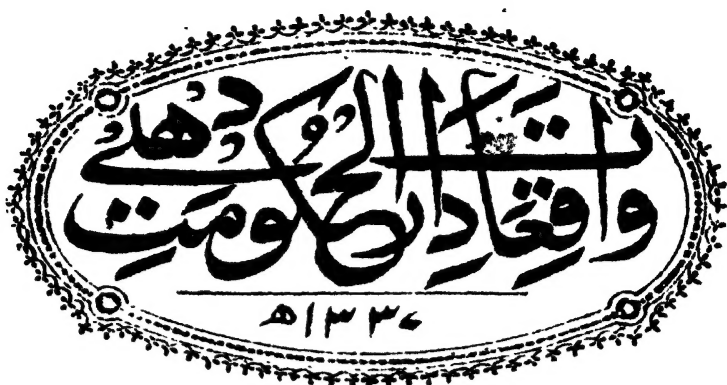 واقعات دار الحکومت دهلی
۱۳۳۷ھ